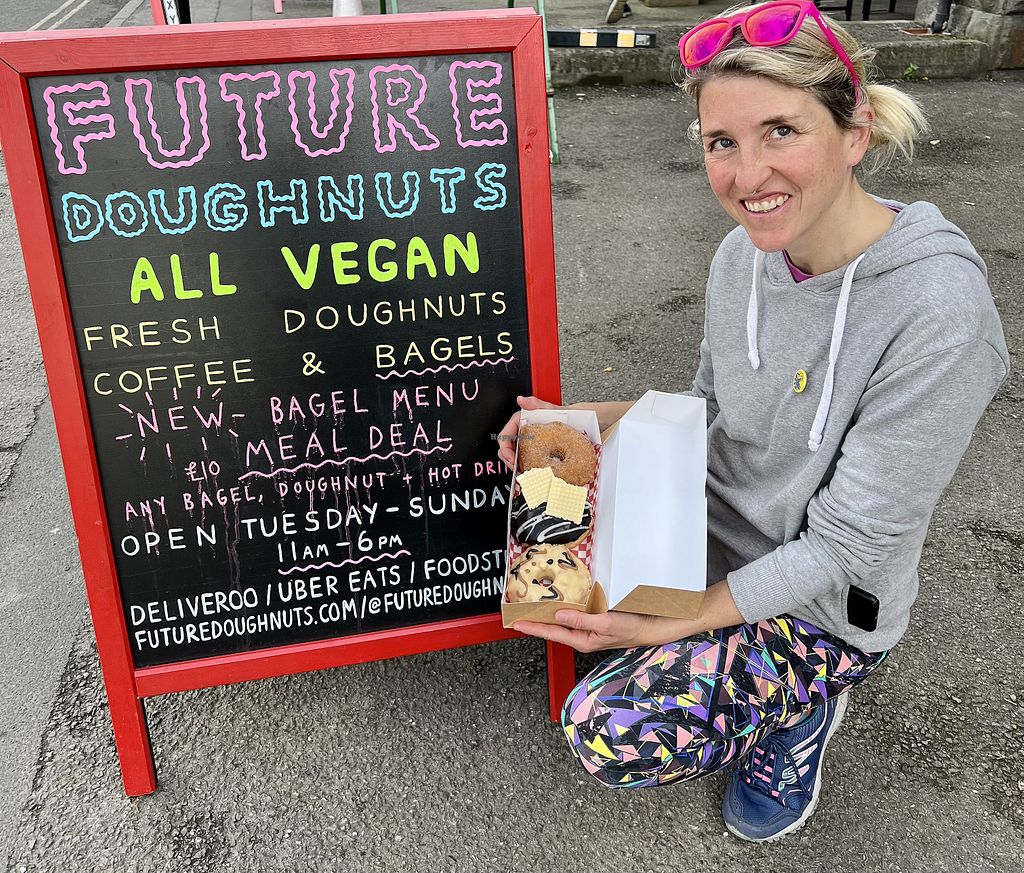 FUTURE
DOUGHNUTS
ALL VEGAN
FRESH DOUGHNUTS
COFFEE & BAGELS
-NEW- BAGEL MENU
£10 MEAL DEAL
ANY BAGEL, DOUGHNUT + HOT
OPEN TUESDAY - SUNDAY
11AM - 6PM
DELIVEROO / UBER EATS /
FUTUREDOUGHNUTS.COM /